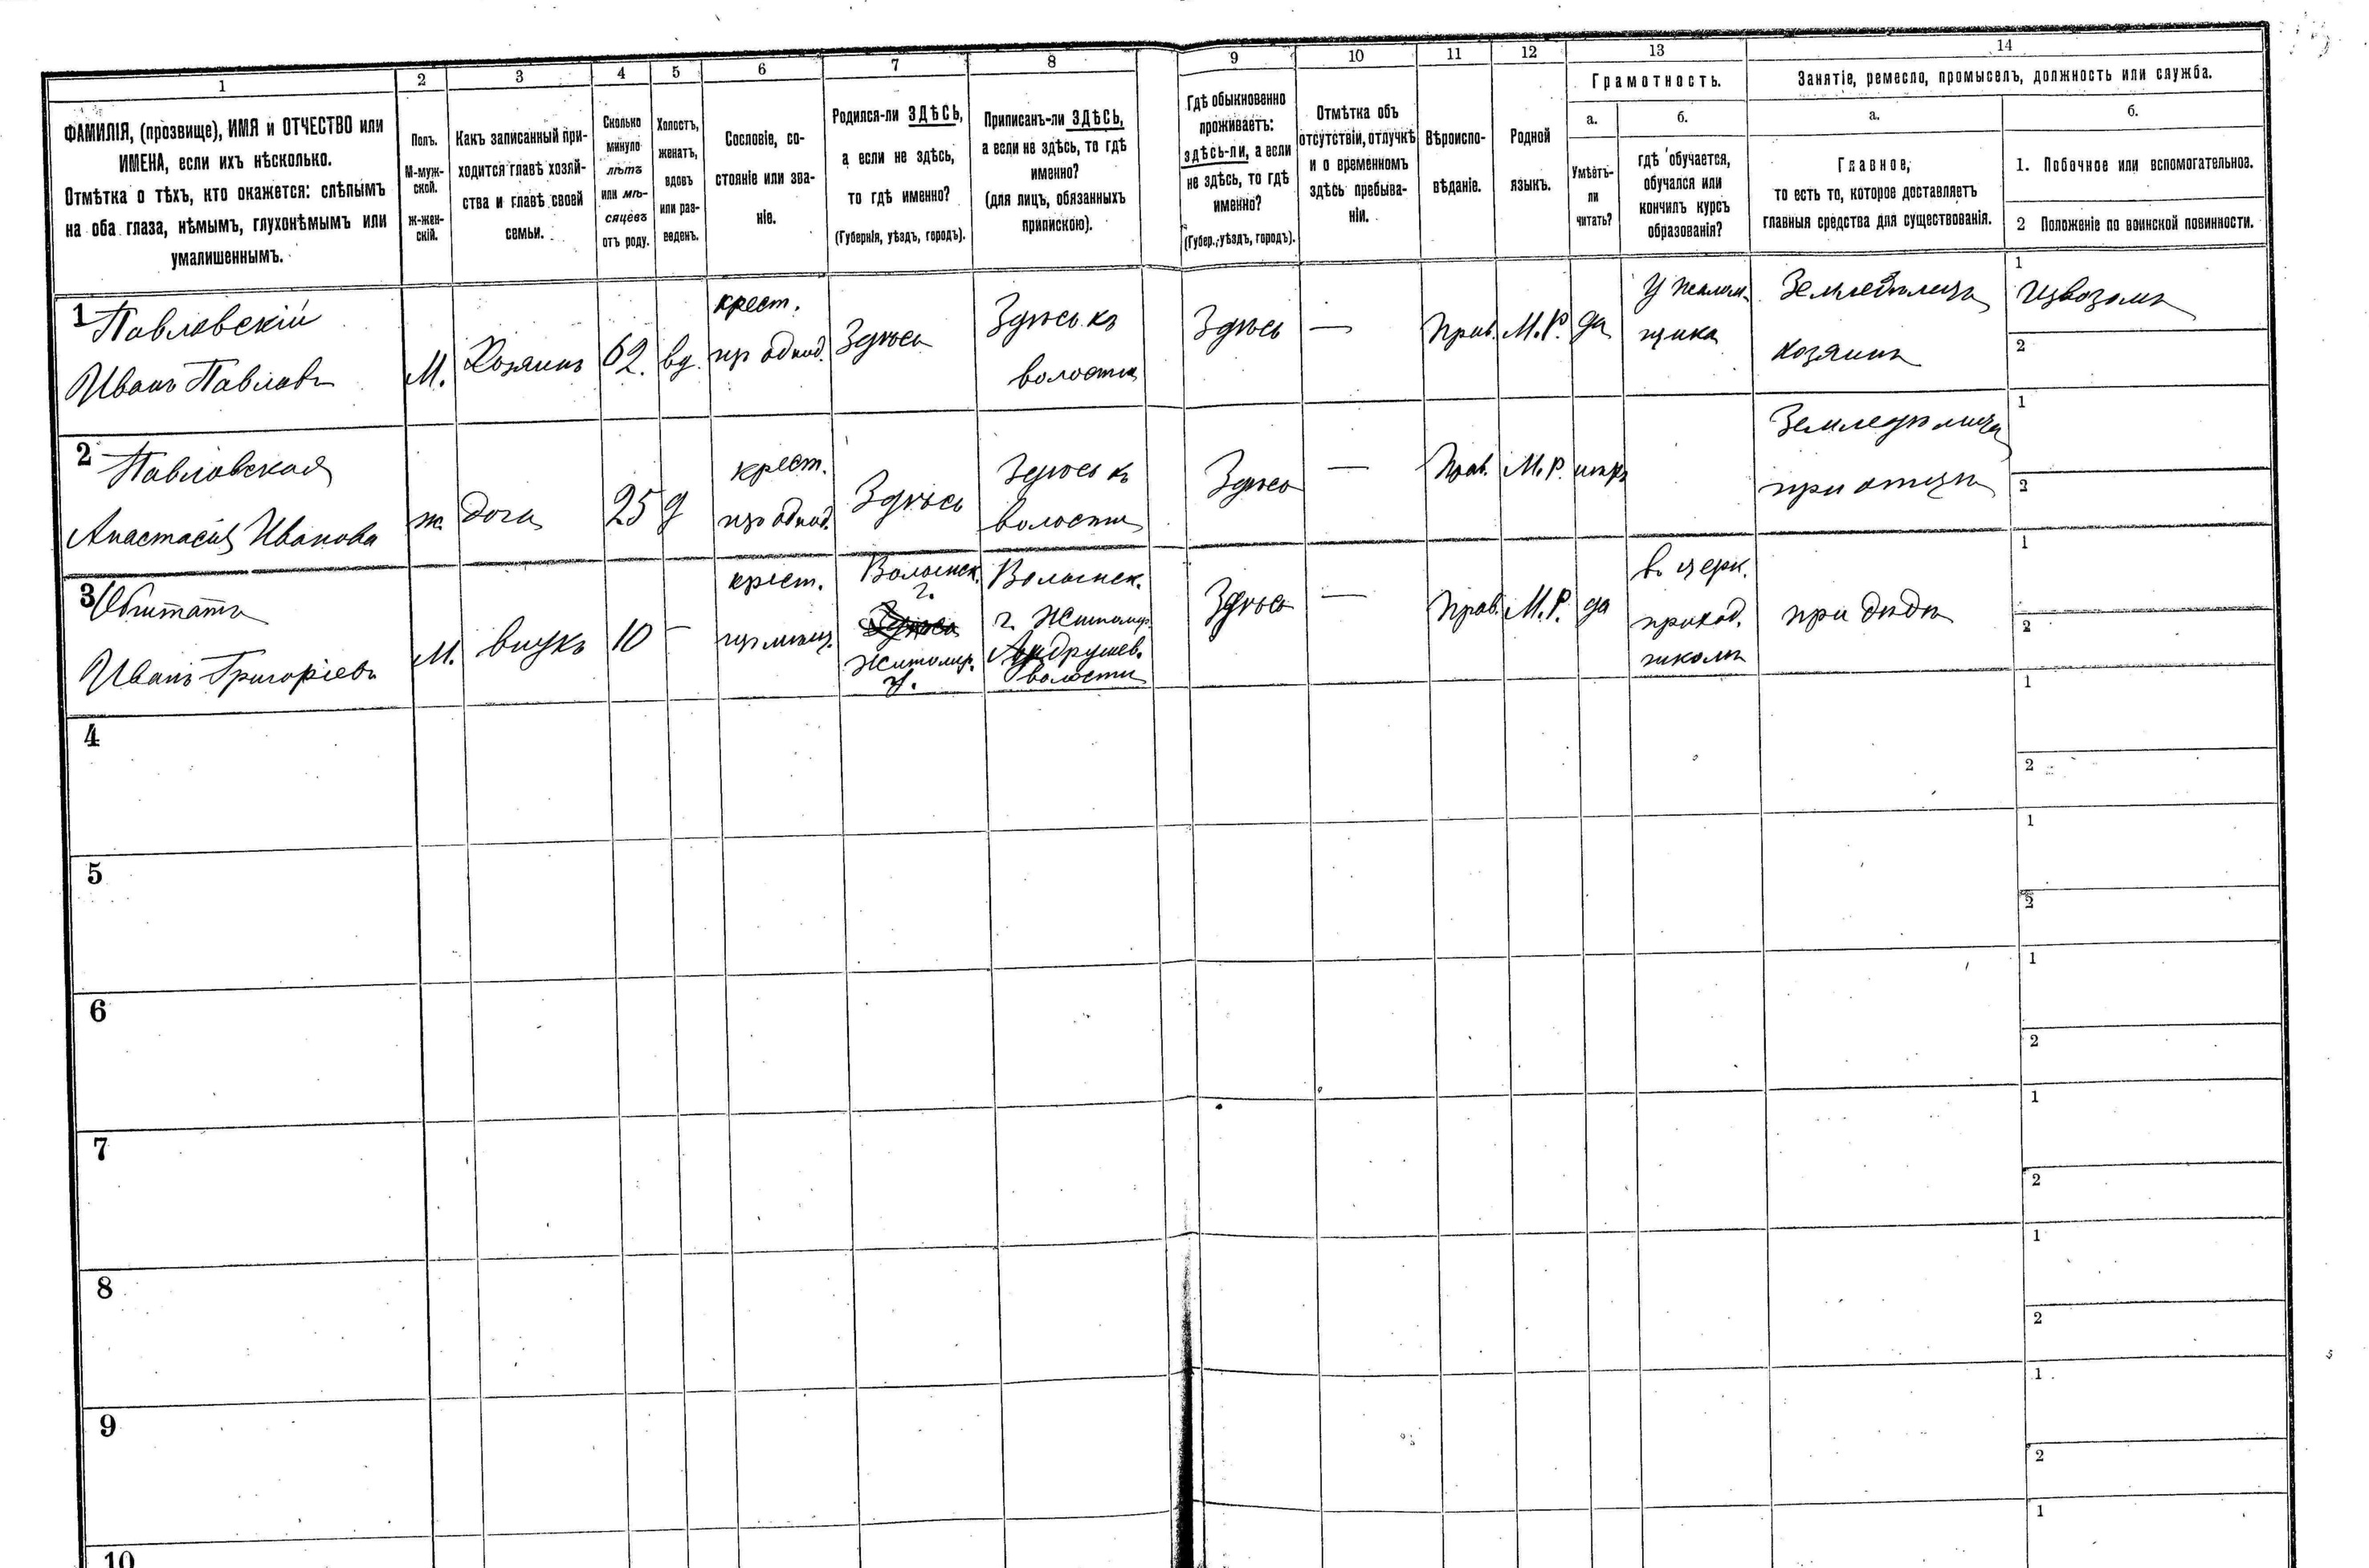 1 2 3 4 5 6 7 8 9 10 11 12 13 14
ФАМИЛІЯ, (прозвище), ИМЯ и ОТЧЕСТВО или
ИМЕНА, если ихъ нѣсколько.
Отмѣтка о тѣхъ, кто окажется: слѣпымъ
на оба глаза, нѣмымъ, глухонѣмымъ или
умалишеннымъ.
Полъ.
М-муж-
ской.
ж-жен-
скій.
Какъ записанный при-
ходится главѣ хозяй-
ства и главѣ своей
семьи.
Сколько
минуло
лѣтъ
или мѣ-
сяцевъ
отъ роду.
Холостъ,
женатъ,
вдовъ
или раз-
веденъ.
Сословіе, со-
стояніе или зва-
ніе.
Родился-ли ЗДѢСЬ,
а если не здѣсь,
то гдѣ именно?
(Губернія, уѣздъ, городъ).
Приписанъ-ли ЗДѢСЬ,
а если не здѣсь, то гдѣ
именно?
(для лицъ, обязанныхъ
припискою).
Гдѣ обыкновенно
проживаетъ:
здѣсь-ли, а если
не здѣсь, то гдѣ
именно?
(Губер., уѣздъ, городъ).
Отмѣтка объ
отсутствіи, отлучкѣ
и о временномъ
здѣсь пребыва-
ніи.
Вѣроиспо-
вѣданіе.
Родной
языкъ.
Грамотность.
а.
Умѣетъ-
ли
читать?
б.
гдѣ обучается,
обучался или
кончилъ курсъ
образованія?
Занятіе, ремесло, промыселъ, должность или служба.
а.
Главное,
то есть то, которое доставляетъ
главныя средства для существованія.
б.
1. Побочное или вспомогательное.
2 Положеніе по воинской повинности.
1
Павловскій
Иванъ Павловъ
М.
Хозяинъ
62.
вд.
крест.
из однод.
Здѣсь
Здѣсь къ
волости
Здѣсь
—
Прав.
М.Р.
да
Земледѣлецъ
хозяинъ
1
Извозомъ
2
2
Павловская
Анастасія Иванова
ж.
дочь
25
д
крест.
из однод.
Здѣсь
Здѣсь къ
волости
Здѣсь
—
Прав.
М.Р.
нѣтъ
при отцѣ
1
2
3
Иванъ Григоріевъ
М.
внукъ
10
—
крест.
из мѣщ.
Волынск.
г.
Житомир.
у.
Волынск.
г. Житомир.
Андрушев.
волости
Здѣсь
—
Прав.
М.Р.
да
в церк.
приход.
школѣ
при дѣдѣ
1
2
4
1
2
5
1
2
6
1
2
7
1
2
8
1
2
9
1
2
10
1